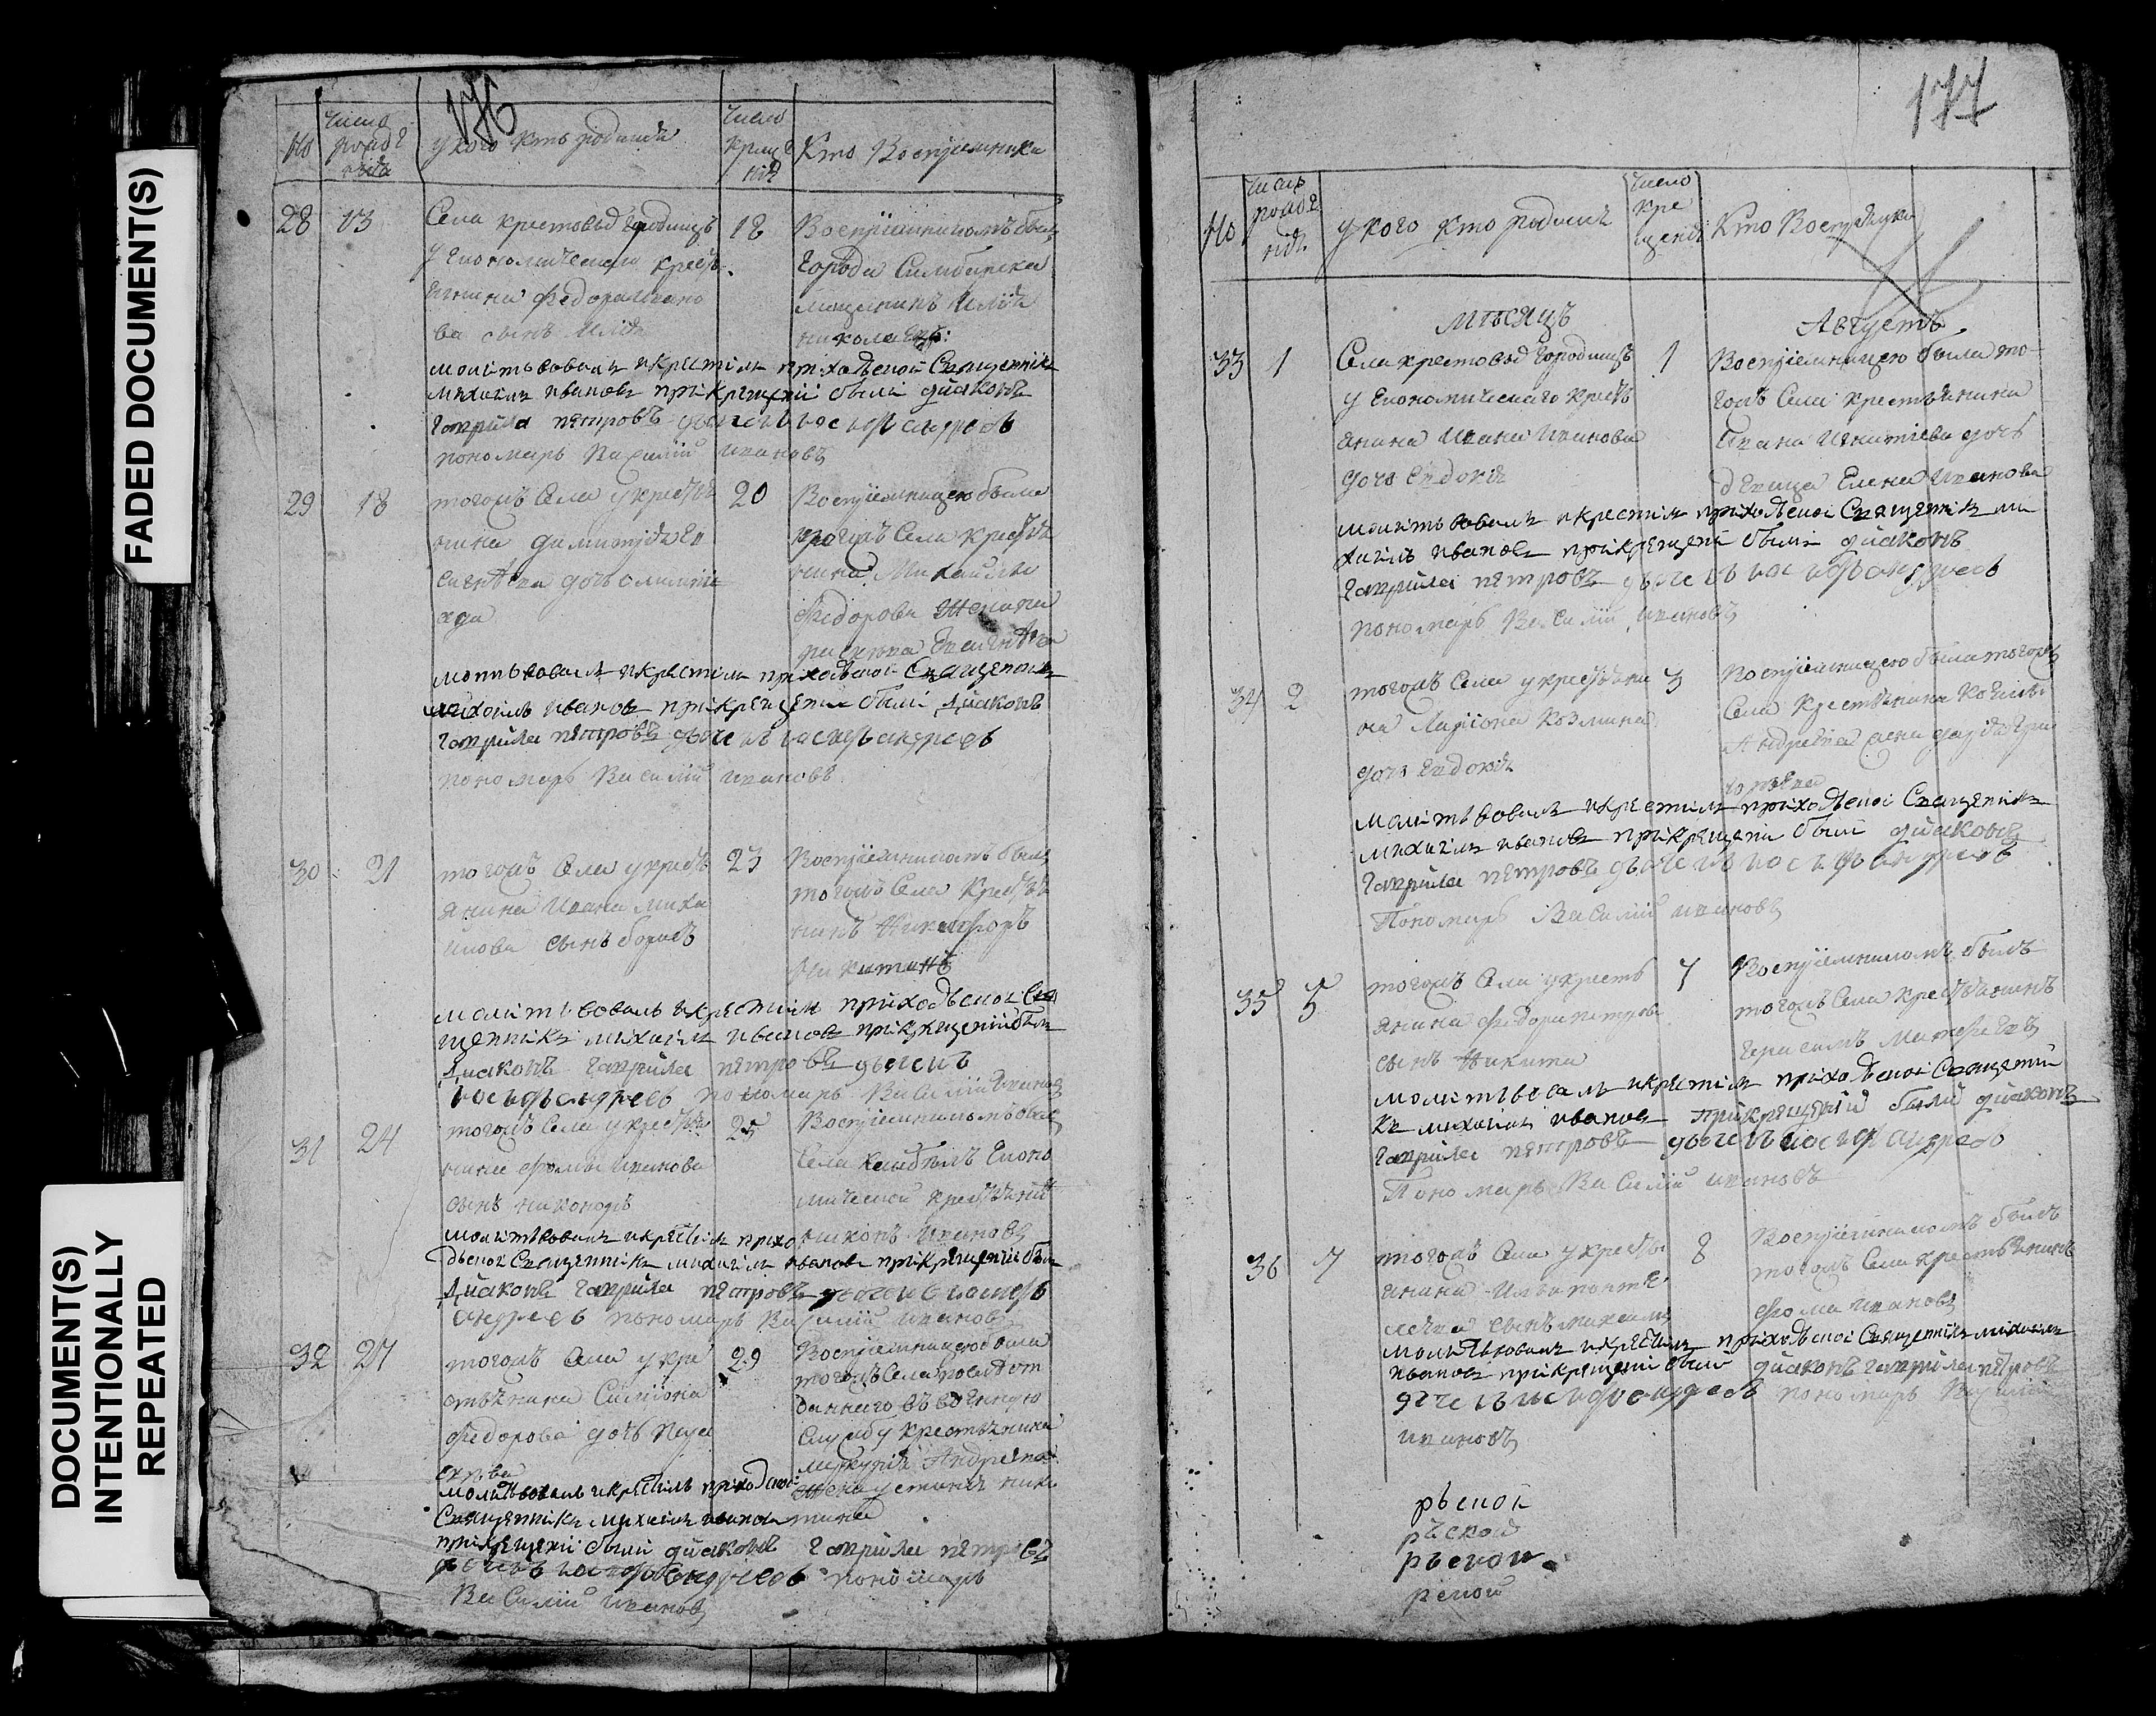 FADED DOCUMENT(S)
DOCUMENT(S)
INTENTIONALLY
REPEATED
176
№
число рожденія
у кого кто родился
число крещенія
Кто Воспріемники
28 13
Села крестовыя городищъ
у Економическаго кресть
янина Федора Ивано
ва сынъ Илія
18
Воспріемникомъ былъ
города Симбирска
мещанинъ Илія
николаевъ:
молитвовалъ икрестилъ приходской Священникъ
михаилъ ивановъ прикрещеніи были диаконъ
гаврила петровъ дьячекъ иосифъ андреевъ
пономарь Василій ивановъ
29 18
тогожъ Села укрестья
нина димитрія Ев
дочь олимпія
ада
20
Воспріемницею была
тогожъ Села крестья
нина Михаила
Федорова Жена
молитвовалъ икрестилъ приходской Священникъ
михаилъ ивановъ прикрещеніи были диаконъ
гаврила петровъ дьячекъ иосифъ андреевъ
пономарь Василій ивановъ
30 21
тогожъ Села укресть
янина Ивана Миха
илова сынъ борисъ
23
Воспріемникомъ былъ
тогожъ Села Крестья
нинъ Никифоръ
Никитинъ
молитвовалъ икрестилъ приходской Свя
щенникъ михаилъ ивановъ прикрещеніи были
диаконъ гаврила петровъ дьячекъ
иосифъ андреевъ пономарь Василій Ивановъ
31 24
тогожъ Села укрестья
нина Фомы иванова
сынъ никоноръ
25
Воспріемникомъ былъ
Села Економ
ической крестьянинъ
Ивановъ
молитвовалъ икрестилъ прихо
дской Священникъ михаилъ ивановъ прикрещеніи были
диаконъ гаврила петровъ дьячекъ иосифъ
андреевъ пономарь Василій ивановъ
32 27
тогожъ Села укре
стьянина Симіона
Федорова дочь
29
Воспріемницею была
тогожъ Села
даннаго въ военную
Службу крестьянина
меркурія Андреева
Жена устинья ники
тина
молитвовалъ икрестилъ приходской
Священникъ михаилъ ивановъ
прикрещеніи были диаконъ гаврила петровъ
дьячекъ иосифъ андреевъ пономарь
Василій ивановъ
177
№
число рожденія
у кого кто родился
число крещенія
Кто Воспріемники
мѣсяцъ Августъ.
33 1
Села крестовыя городищъ
у Економическаго кресть
янина Ивана Иванова
дочь Евдокія
1
Воспріемницею была то
гожъ Села крестьянина
Ивана Игнатіева дочь
девица Елена Иванова
молитвовалъ икрестилъ приходской Священникъ ми
хаилъ ивановъ прикрещеніи были диаконъ
гаврила петровъ дьячекъ иосифъ андреевъ
пономарь Василій ивановъ
34 2
тогожъ Села укрестьяни
на Ларіона Козмина
дочь Евдокія
3
Воспріемницею была тогожъ
Села Крестьянина
Андреева
молитвовалъ икрестилъ приходской Священникъ
михаилъ ивановъ прикрещеніи были диаконъ
гаврила петровъ дьячекъ иосифъ андреевъ
Пономарь Василій ивановъ
35 5
тогожъ Села укресть
янина Федора петрова
сынъ Никита
7
Воспріемникомъ былъ
тогожъ Села крестьянинъ
Герасимъ Матфеевъ
молитвовалъ икрестилъ приходской Священни
къ михаилъ ивановъ прикрещеніи были диаконъ
гаврила петровъ дьячекъ иосифъ андреевъ
Пономарь Василій ивановъ
36 7
тогожъ Села укресть
янина Ильи панте
леева сынъ михаилъ
8
Воспріемникомъ былъ
тогожъ Села крестьянинъ
Фома ивановъ
молитвовалъ икрестилъ приходской Священникъ михаилъ
ивановъ прикрещеніи были диаконъ гаврила петровъ
дьячекъ иосифъ андреевъ пономарь Василій
ивановъ
рьской
рьской
рьской
рской